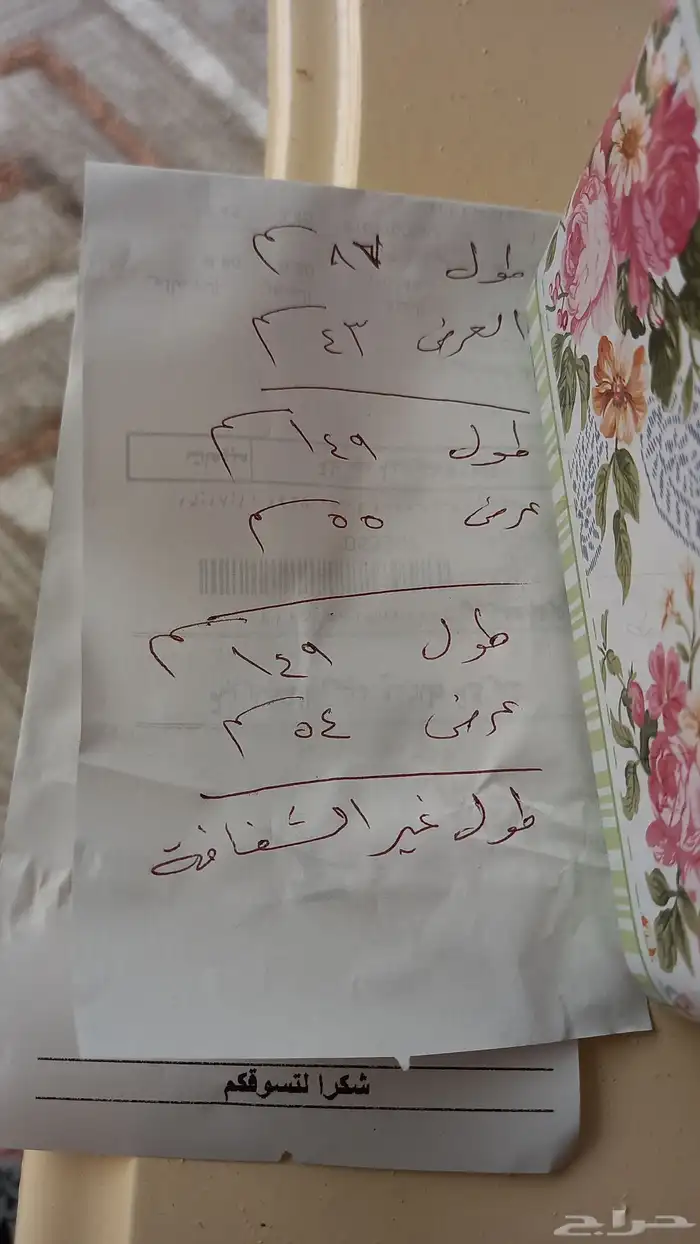 طول ٨٧ م
العرض ٤٣ م
طول ١٤٩ م
عرض ٥٥ م
طول ١٤٩ م
عرض ٥٤ م
طول غير الشفافة
شكرا لتسوقكم
حراج